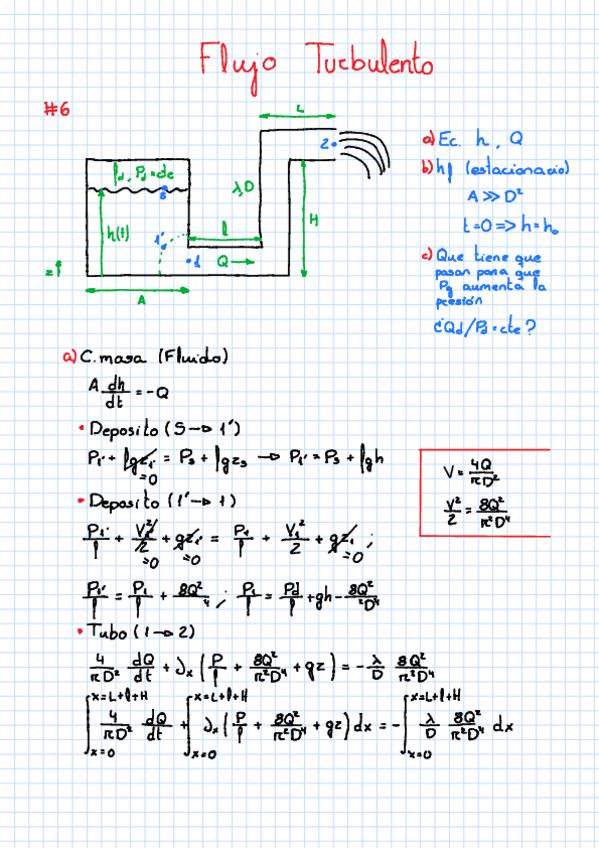 Flujo Turbulento
#6
L
2
a) Ec. h, Q
ρd, Pd = cte
s
λ, D
b) hf (estacionario)
A >> D²
H
t=0 => h=h₀
h(t)
l
1'
1
Q →
z↑
A
c) Que tiene que
pasar para que
Pd aumenta la
presión
¿Qd/Pd = cte?
a) C. masa (Fluido)
A dh/dt = -Q
• Deposito (S → 1')
P1' + ρgz1' = Ps + ρgzs → P1' = Ps + ρgh
=0
V = 4Q/πD²
V²/2 = 8Q²/π²D⁴
• Deposito (1' → 1)
P1'/ρ + V1'²/2 + gz1' = P1/ρ + V1²/2 + gz1 ;
=0 =0 =0
P1'/ρ = P1/ρ + 8Q²/ ⁴ ; P1/ρ = Pd/ρ + gh - 8Q²/π²D⁴
• Tubo (1 → 2)
4/πD² dQ/dt + ∂x (P/ρ + 8Q²/π²D⁴ + gz) = - λ/D 8Q²/π²D⁴
∫x=0 x=L+l+H 4/πD² dQ/dt + ∫x=0 x=L+l+H ∂x (P/ρ + 8Q²/π²D⁴ + gz) dx = - ∫x=0 x=L+l+H λ/D 8Q²/π²D⁴ dx